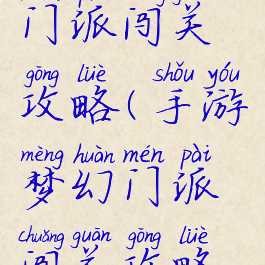 门派闯关
gōng lüè shǒu yóu
攻略(手游
mèng huàn mén pài
梦幻门派
chuǎng guān gōng lüè
闯关攻略